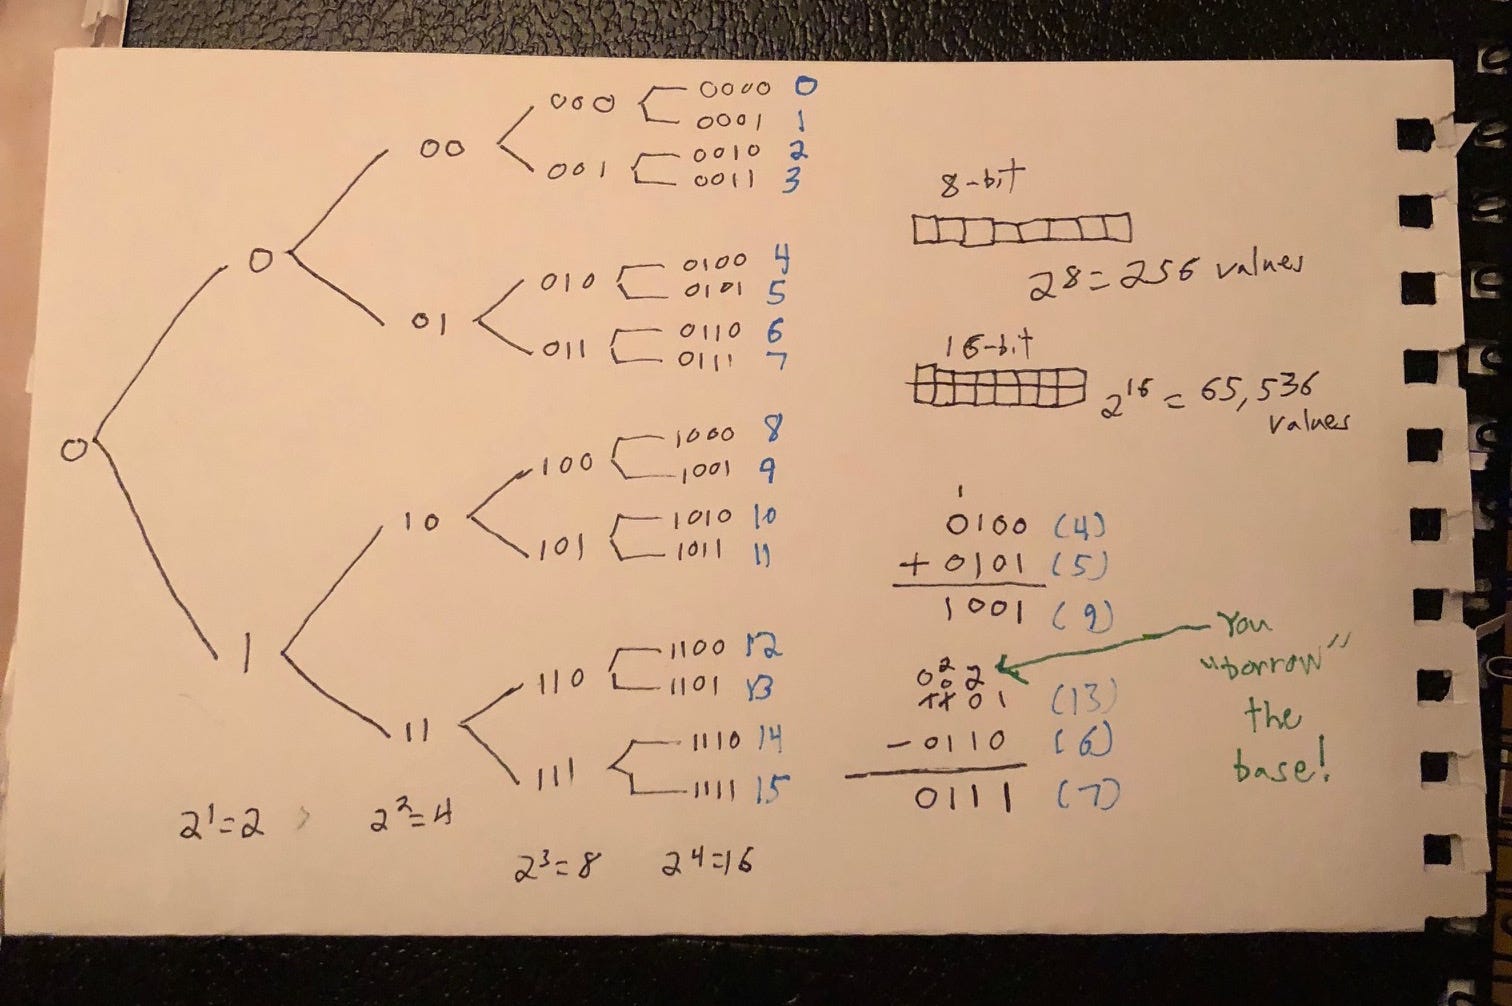 0
0
1
00
01
10
11
000
001
010
011
100
101
110
111
0000 0
0001 1
0010 2
0011 3
0100 4
0101 5
0110 6
0111 7
1000 8
1001 9
1010 10
1011 11
1100 12
1101 13
1110 14
1111 15
2¹=2
2²=4
2³=8
2⁴=16
8-bit
2⁸=256 values
16-bit
2¹⁶ = 65,536
values
1
0100 (4)
+ 0101 (5)
1001 (9)
2
0 0 2
1101 (13)
- 0110 (6)
0111 (7)
You
"borrow"
the
base!